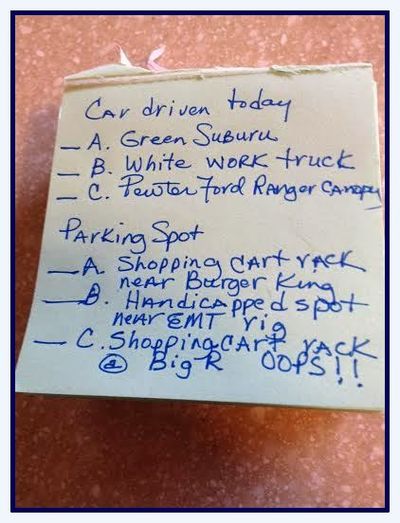 Car driven today
_ A. Green Suburu
_ B. White work truck
_ C. Pewter Ford Ranger canopy
Parking Spot
_ A. Shopping cart rack
near Burger King
_ B. Handicapped spot
near EMT rig
_ C. Shopping cart rack
@ Big R OOPS!!